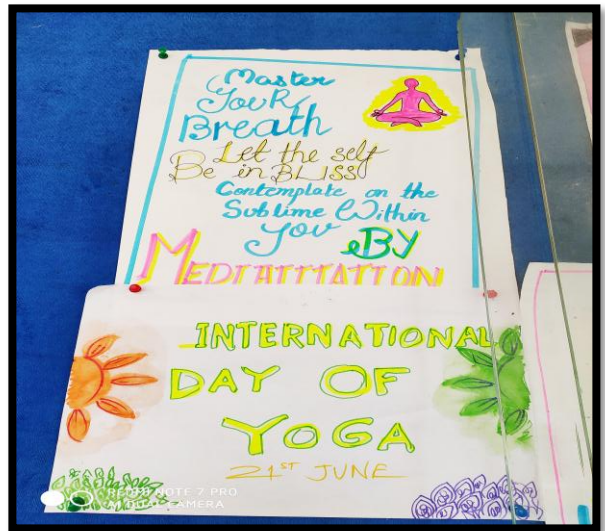 Master
YouR
Breath
Let the self
Be in BLISS
Contemplate on the
Sublime Within
You BY
MEDIATITATION
INTERNATIONAL
DAY OF
YOGA
21ST JUNE
REDMI NOTE 7 PRO
AI DUAL CAMERA